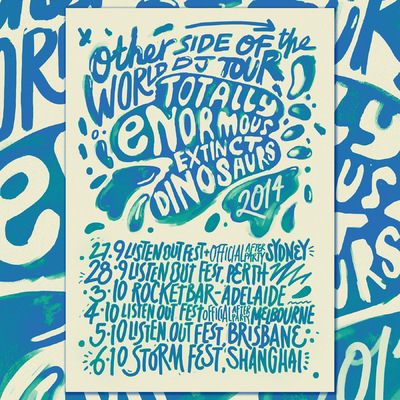 other SIDE OF the
WORLD DJ TOUR
TOTALLY
eNORMOUS
EXTINCT
DINOSAURS
2014
27.9 LISTEN OUT FEST + OFFICIAL AFTER PARTY SYDNEY
28.9 LISTEN OUT FEST. PERTH
3.10 ROCKETBAR - ADELAIDE
4.10 LISTEN OUT FEST OFFICIAL AFTER PARTY MELBOURNE
5.10 LISTEN OUT FEST, BRISBANE
6.10 STORM FEST, SHANGHAI